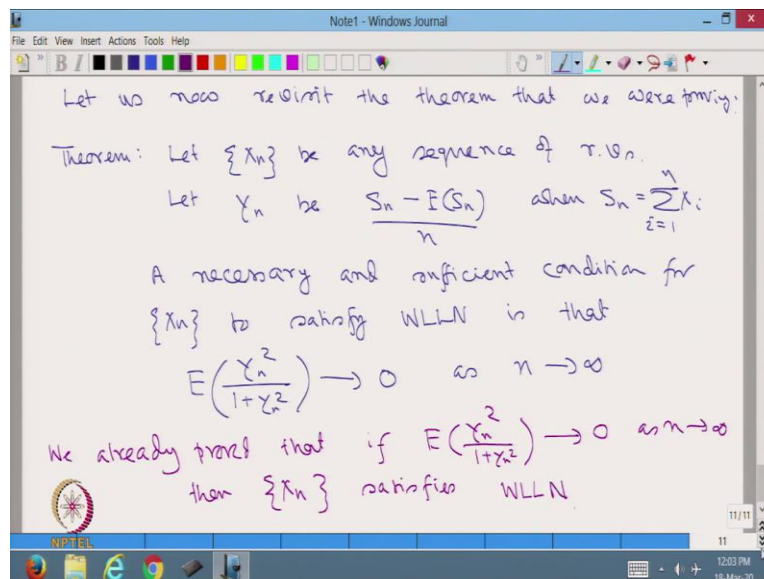 Note1 - Windows Journal
File Edit View Insert Actions Tools Help
B I
Let us now revisit the theorem that we were proving.
Theorem: Let {Xn} be any sequence of r.v.s.
Let Yn be (Sn - E(Sn))/n when Sn = ∑_{i=1}^{n} Xi
A necessary and sufficient condition for
{Xn} to satisfy WLLN is that
E(Yn²/(1+Yn²)) → 0 as n → ∞
We already proved that if E(Yn²/(1+Yn²)) → 0 as n → ∞
then {Xn} satisfies WLLN
11/11
NPTEL
11
12:03 PM
18-Mar-20